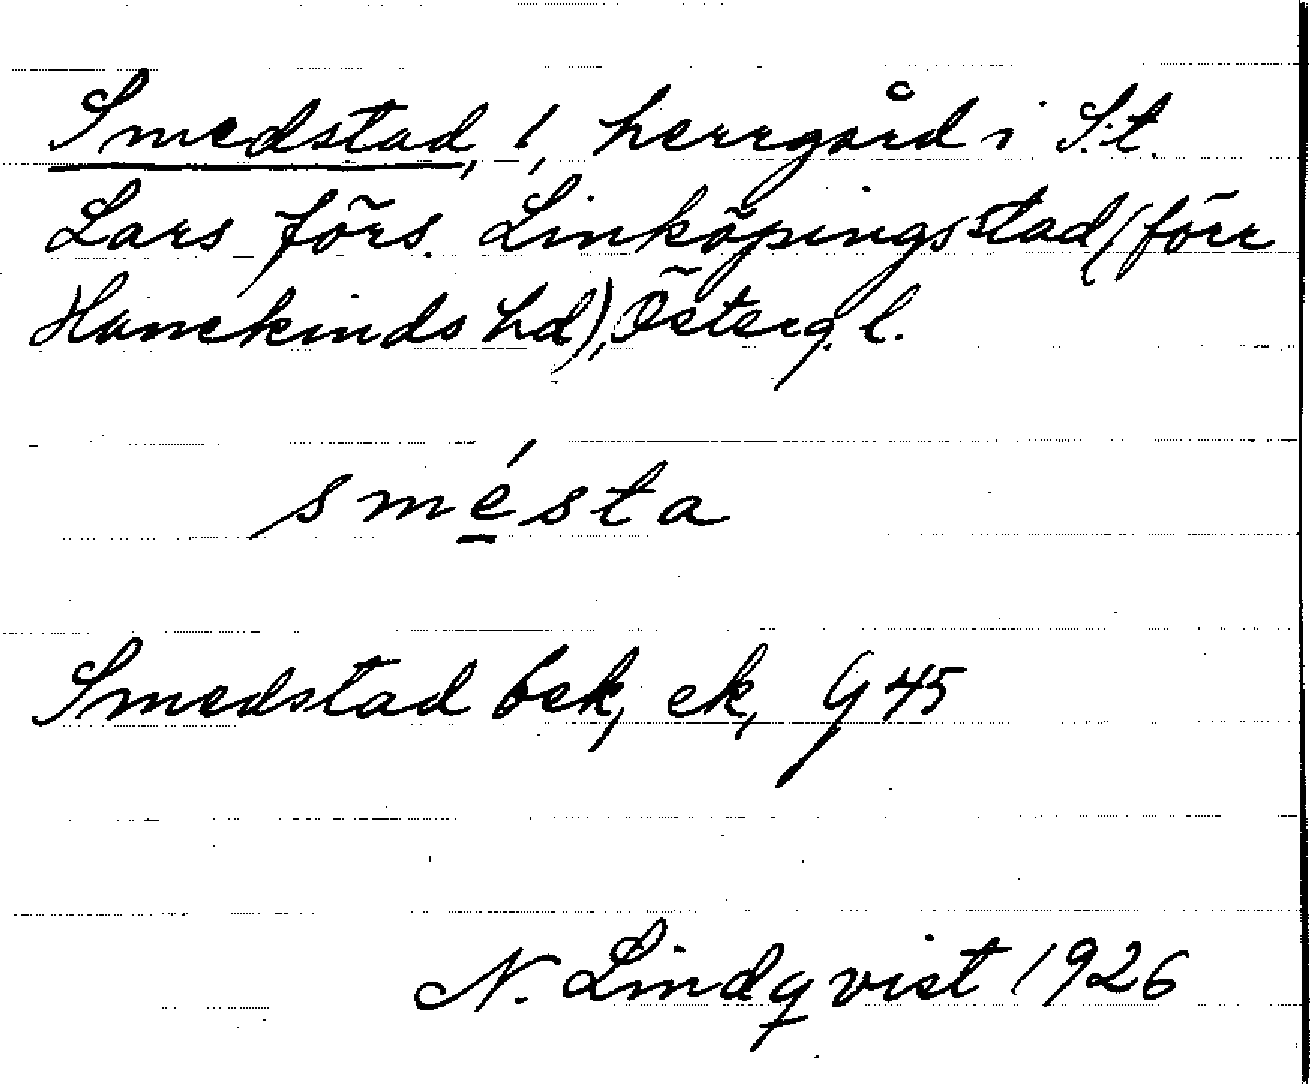 Smedstad, 1, herrgård i S:t
Lars förs. Linköpings stad (förr
Hanekinds hd), Österg. l.
smésta
Smedstad bek, ek, G 45
N. Lindqvist 1926